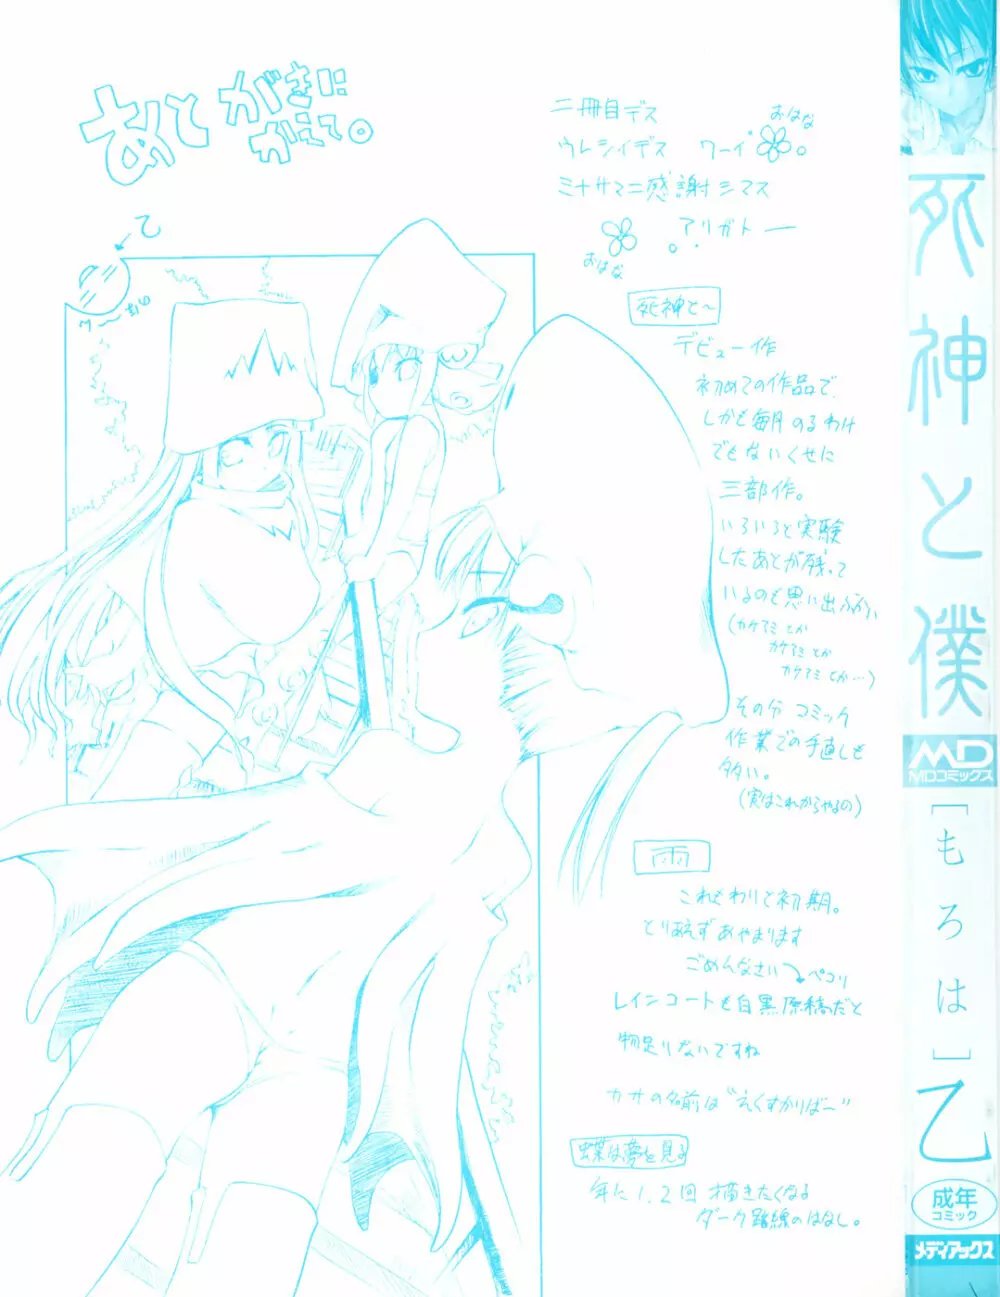 あとがきに
かえて。
乙
二冊目デス
ウレシイデス ワーイ
おはな
ミナサマニ感謝シマス
アリガトー
おはな
死神と〜
デビュー作
初めての作品で、
しかも毎月のるわけ
でもないくせに
三部作。
いろいろと実験
したあとが残って
いるのも思い出ぶかい
(カケアミとか
カケアミとか
カケアミとか…)
その分コミック
作業での手直しも
多い。
(実はこれからやるの)
雨
これもわりと初期。
とりあえずあやまります
ごめんなさい ペコリ
レインコートも白黒原稿だと
物足りないですね
カサの名前は"えくすかりばー"
蝶は夢を見る
年に1.2回描きたくなる
ダーク路線のはなし。
死神と僕
MD
MDコミックス
[もろは]乙
成年
コミック
メディアックス